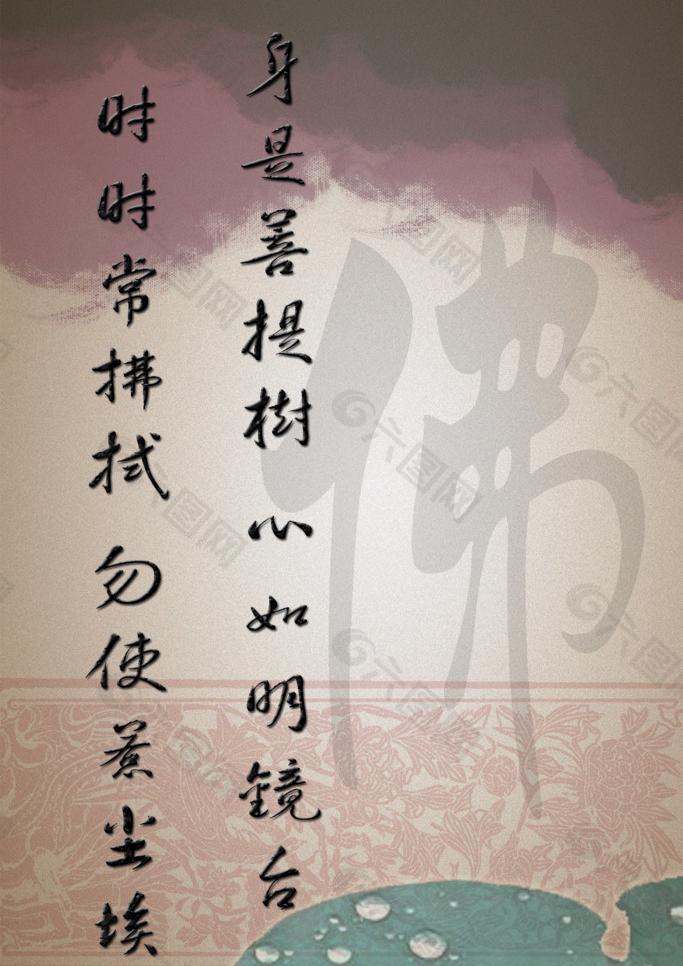 身是善提樹心如明鏡台
时时常拂拭勿使惹尘埃
佛
六图网